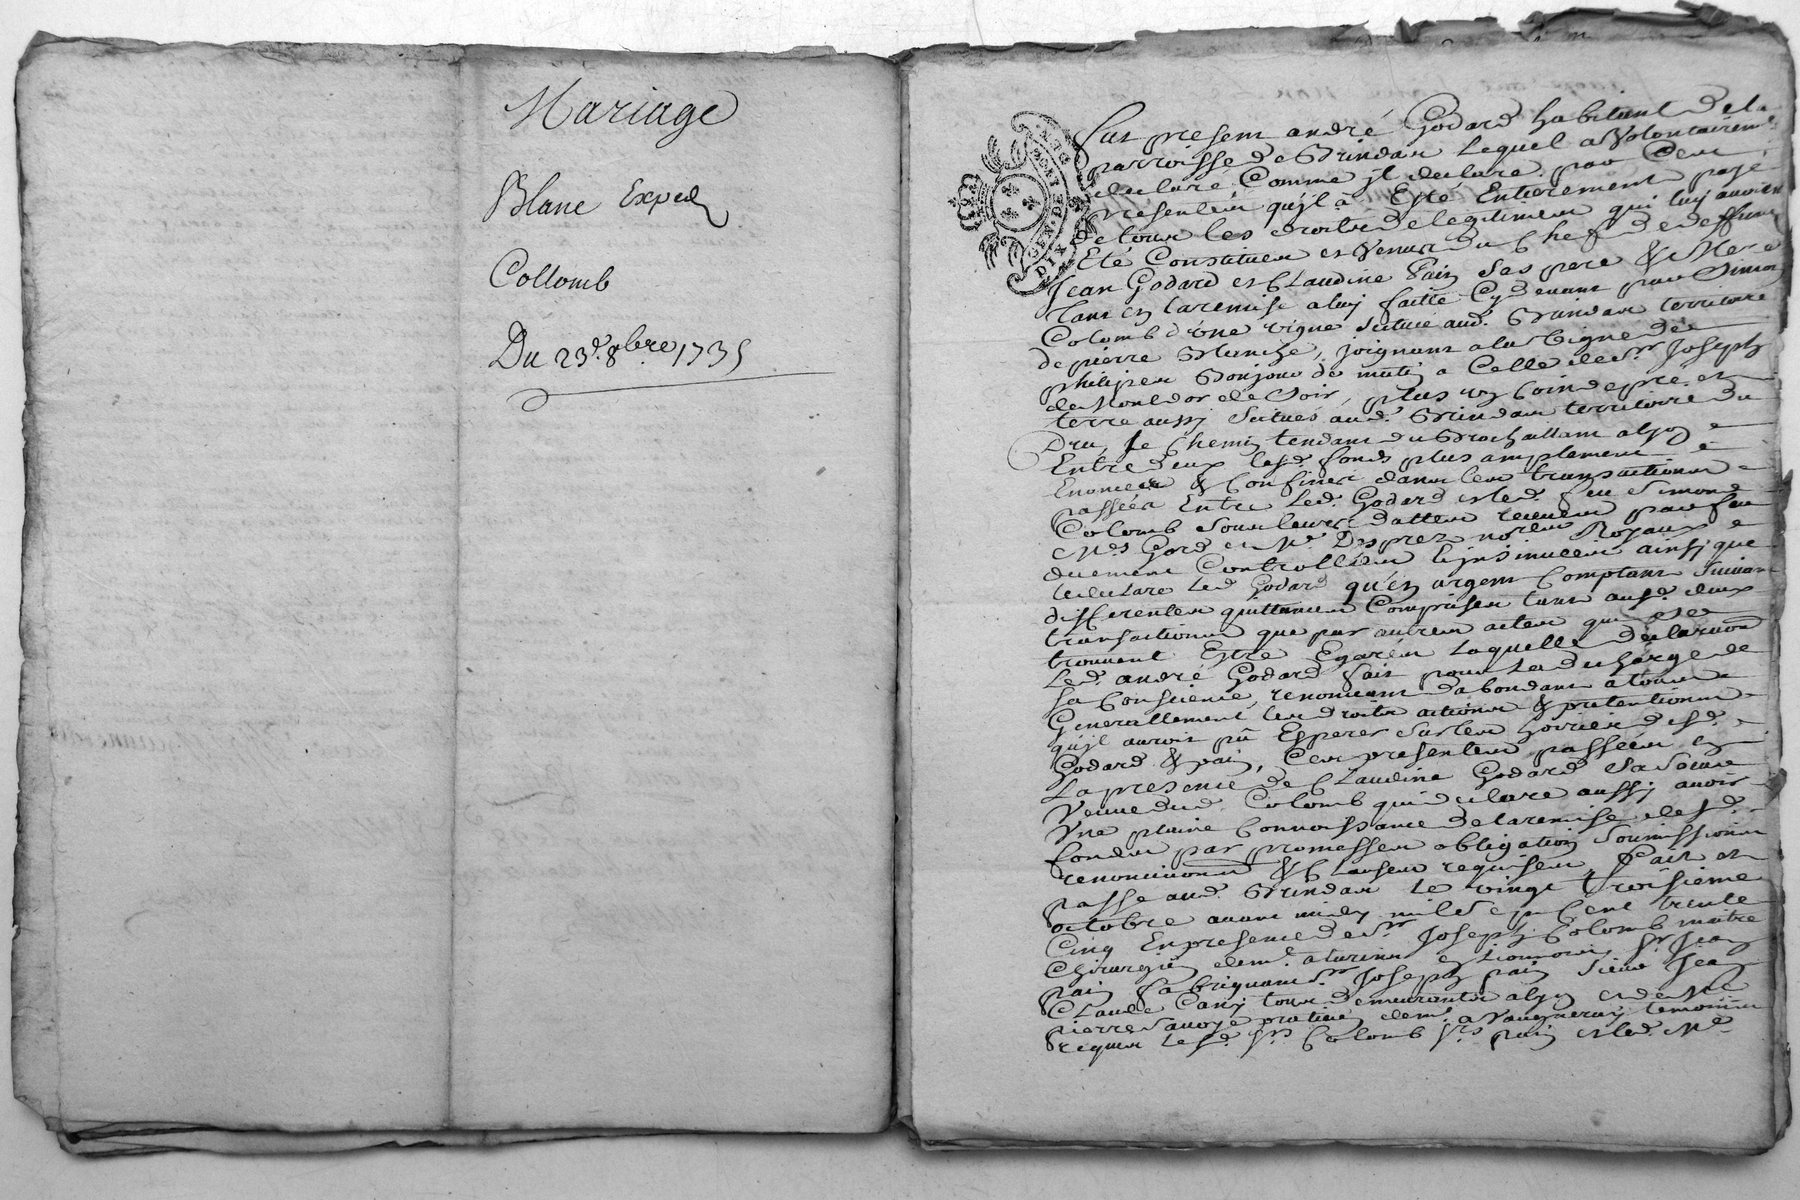 Mariage
Blanc Exped
Collomb
Du 23d. 8bre 1735
GEN. DE LYON
DIX DEN
Fut present andré Godard habitant de la
parroisse de Brindas Lequel a Volontairemt
declaré Comme jl declare par Ces
presentes qu'jl a Esté Entierement payé
de tous les droits de legitimes qui luy avoient
Eté Constitués et Venus du Chef de deffunts
Jean Godard et Claudine pain Ses pere & Mere
tant En la remise a luy faitte Cy devant par Simon
Colomb d'une vigne Scituée aud. Brindas territoire
de pierre Blanche, joignant a la Vigne de
philipes Bonjour de matin a Celle de Sr. Joseph
de Montdor de Soir, plus un Coin de pré et
terre aussy Scitués aud. Brindas territoire du
Dru, le Chemin tendant du Brochaillam a lyon
Entre deux lesd. fonds plus amplement
Enoncés & Confinés dans les transactions
passées Entre led. Godard et led. feu Simond
Colomb Sous leurs dattes receues par feu
Mes Gord et Me. Desprez nores Royaux
duement Controllées & jnsinuées ainsy que
le declare led. Godard qu'En argent Comptant Suivant
differentes quittances Comprises tant ausd. deux
transactions que par autres actes qui se
trouvent Estre Egarés Laquelle declaration
led. andré Godard fait pour la decharge de
sa Conscience, renonceant d'abondant a tous
Generallement les droits actions & pretentions
qu'jl auroit pû Esperer Sur les hoiries desd.
Godard & pain, Ces presentes passées En
La presence de Claudine Godard Sa Soeur
Veuve dud. Colomb qui declare aussy avoir
Une plaine Connoissance de la remise desd.
fonds par promesses obligation Soumissions
renonciations & Clauses requises, fait et
passé aud. Brindas le vingt troisieme
octobre avant midy mil sept Cent trente
Cinq En presence de Sr. Joseph Colomb maitre
Chirurgien demt. a turins En Lionnois, Sr. Jean
pain fabriquant Sr. Joseph pain Sieur Jean
Claude Cany tous demeurants a lyon et de Me
pierre Savoye praticien demt. a Vaugneray temoins
requis lesd. Srs. Colomb Srs. pain et led. Me